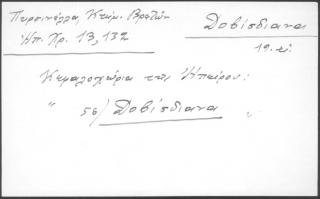 Πυρσινέλλα, Κτημ. Βρυζών
Ἠπ. Χρ. 13, 132
Δοβίσδιανα
19. αἰ.
Κεφαλοχώρια των Ἠπείρου:
" 56/ Δοβίσδιανα "